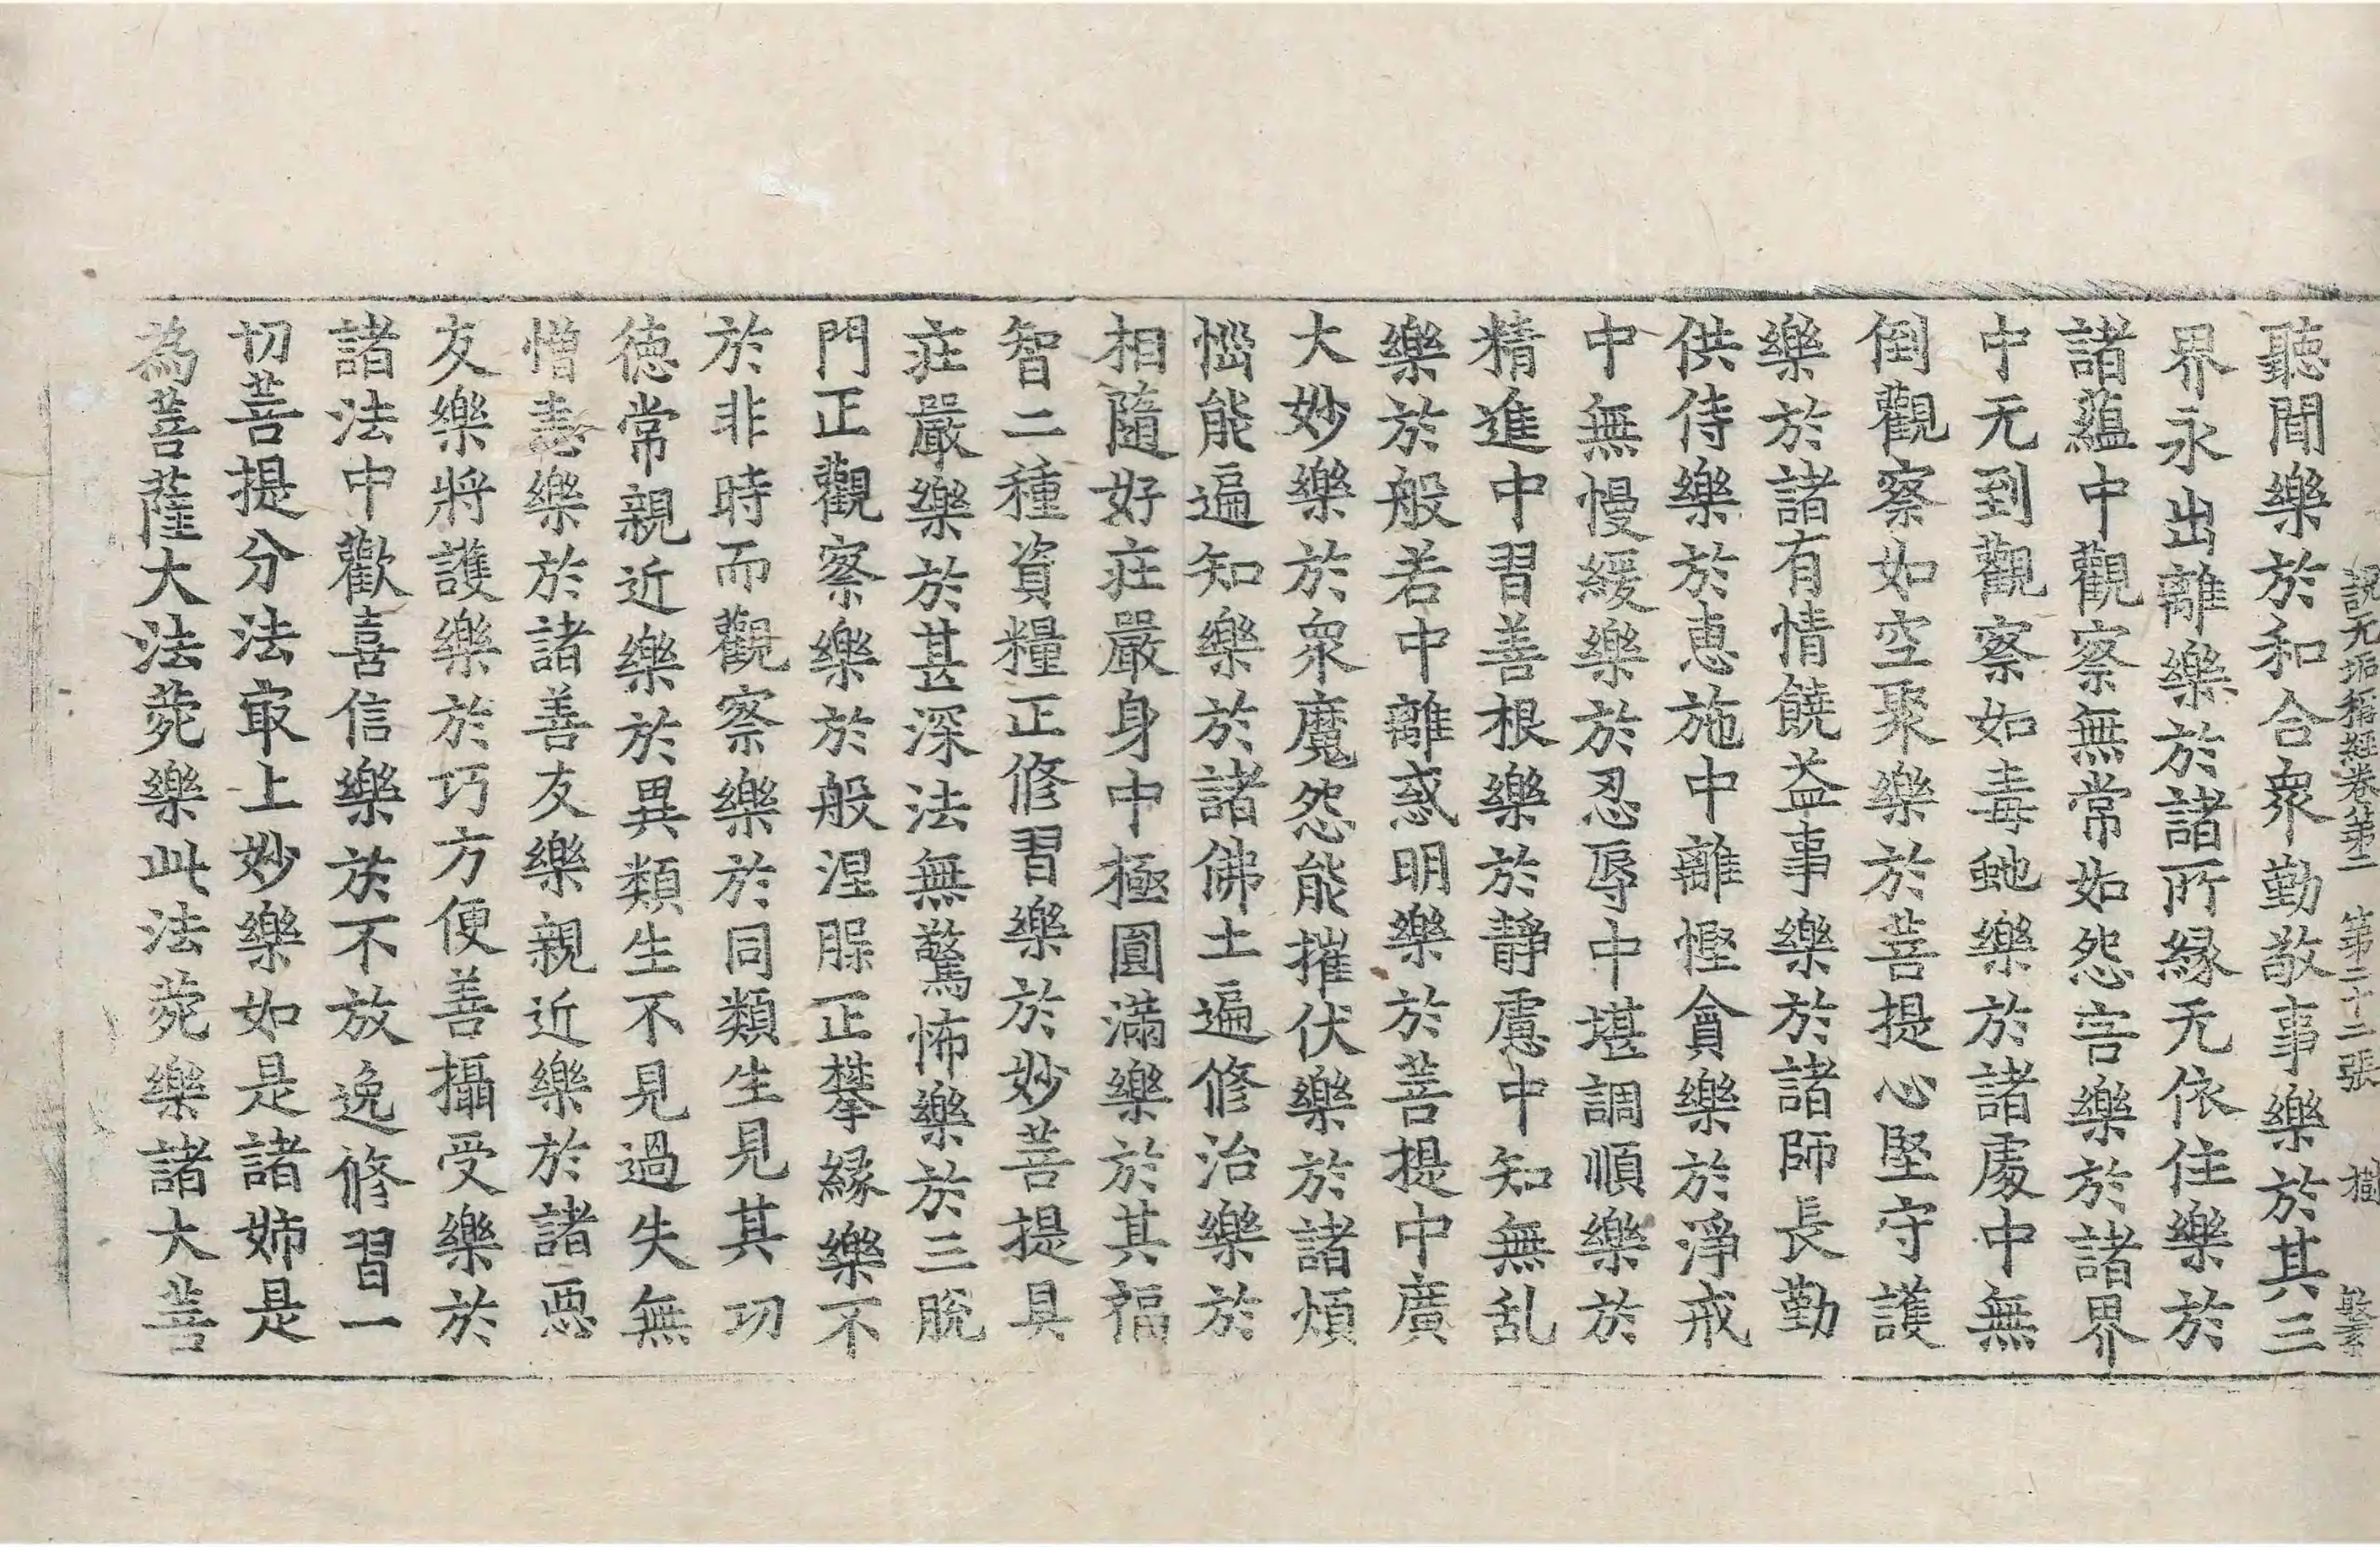 說无垢稱經卷第二 第二十二張 樹
聽聞樂於和合衆勤敬事樂於其三
界永出離樂於諸所縁无依住樂於
諸蘊中觀察無常如怨害樂於諸界
中无到觀察如毒虵樂於諸處中無
倒觀察如空聚樂於菩提心堅守護
樂於諸有情饒益事樂於諸師長勤
供侍樂於恵施中離慳貪樂於淨戒
中無慢緩樂於忍辱中堪調順樂於
精進中習善根樂於靜慮中知無乱
樂於般若中離惑明樂於菩提中廣
大妙樂於衆魔怨能摧伏樂於諸煩
惱能遍知樂於諸佛土遍修治樂於
相隨好莊嚴身中極圓滿樂於其福
智二種資糧正修習樂於妙菩提具
莊嚴樂於甚深法無驚怖樂於三脫
門正觀察樂於般涅脲正攀縁樂不
於非時而觀察樂於同類生見其功
徳常親近樂於異類生不見過失無
憎恚樂於諸善友樂親近樂於諸惡
友樂將護樂於巧方便善攝受樂於
諸法中歡喜信樂於不放逸修習一
切菩提分法㝡上妙樂如是諸姉是
為菩薩大法菀樂此法菀樂諸大菩